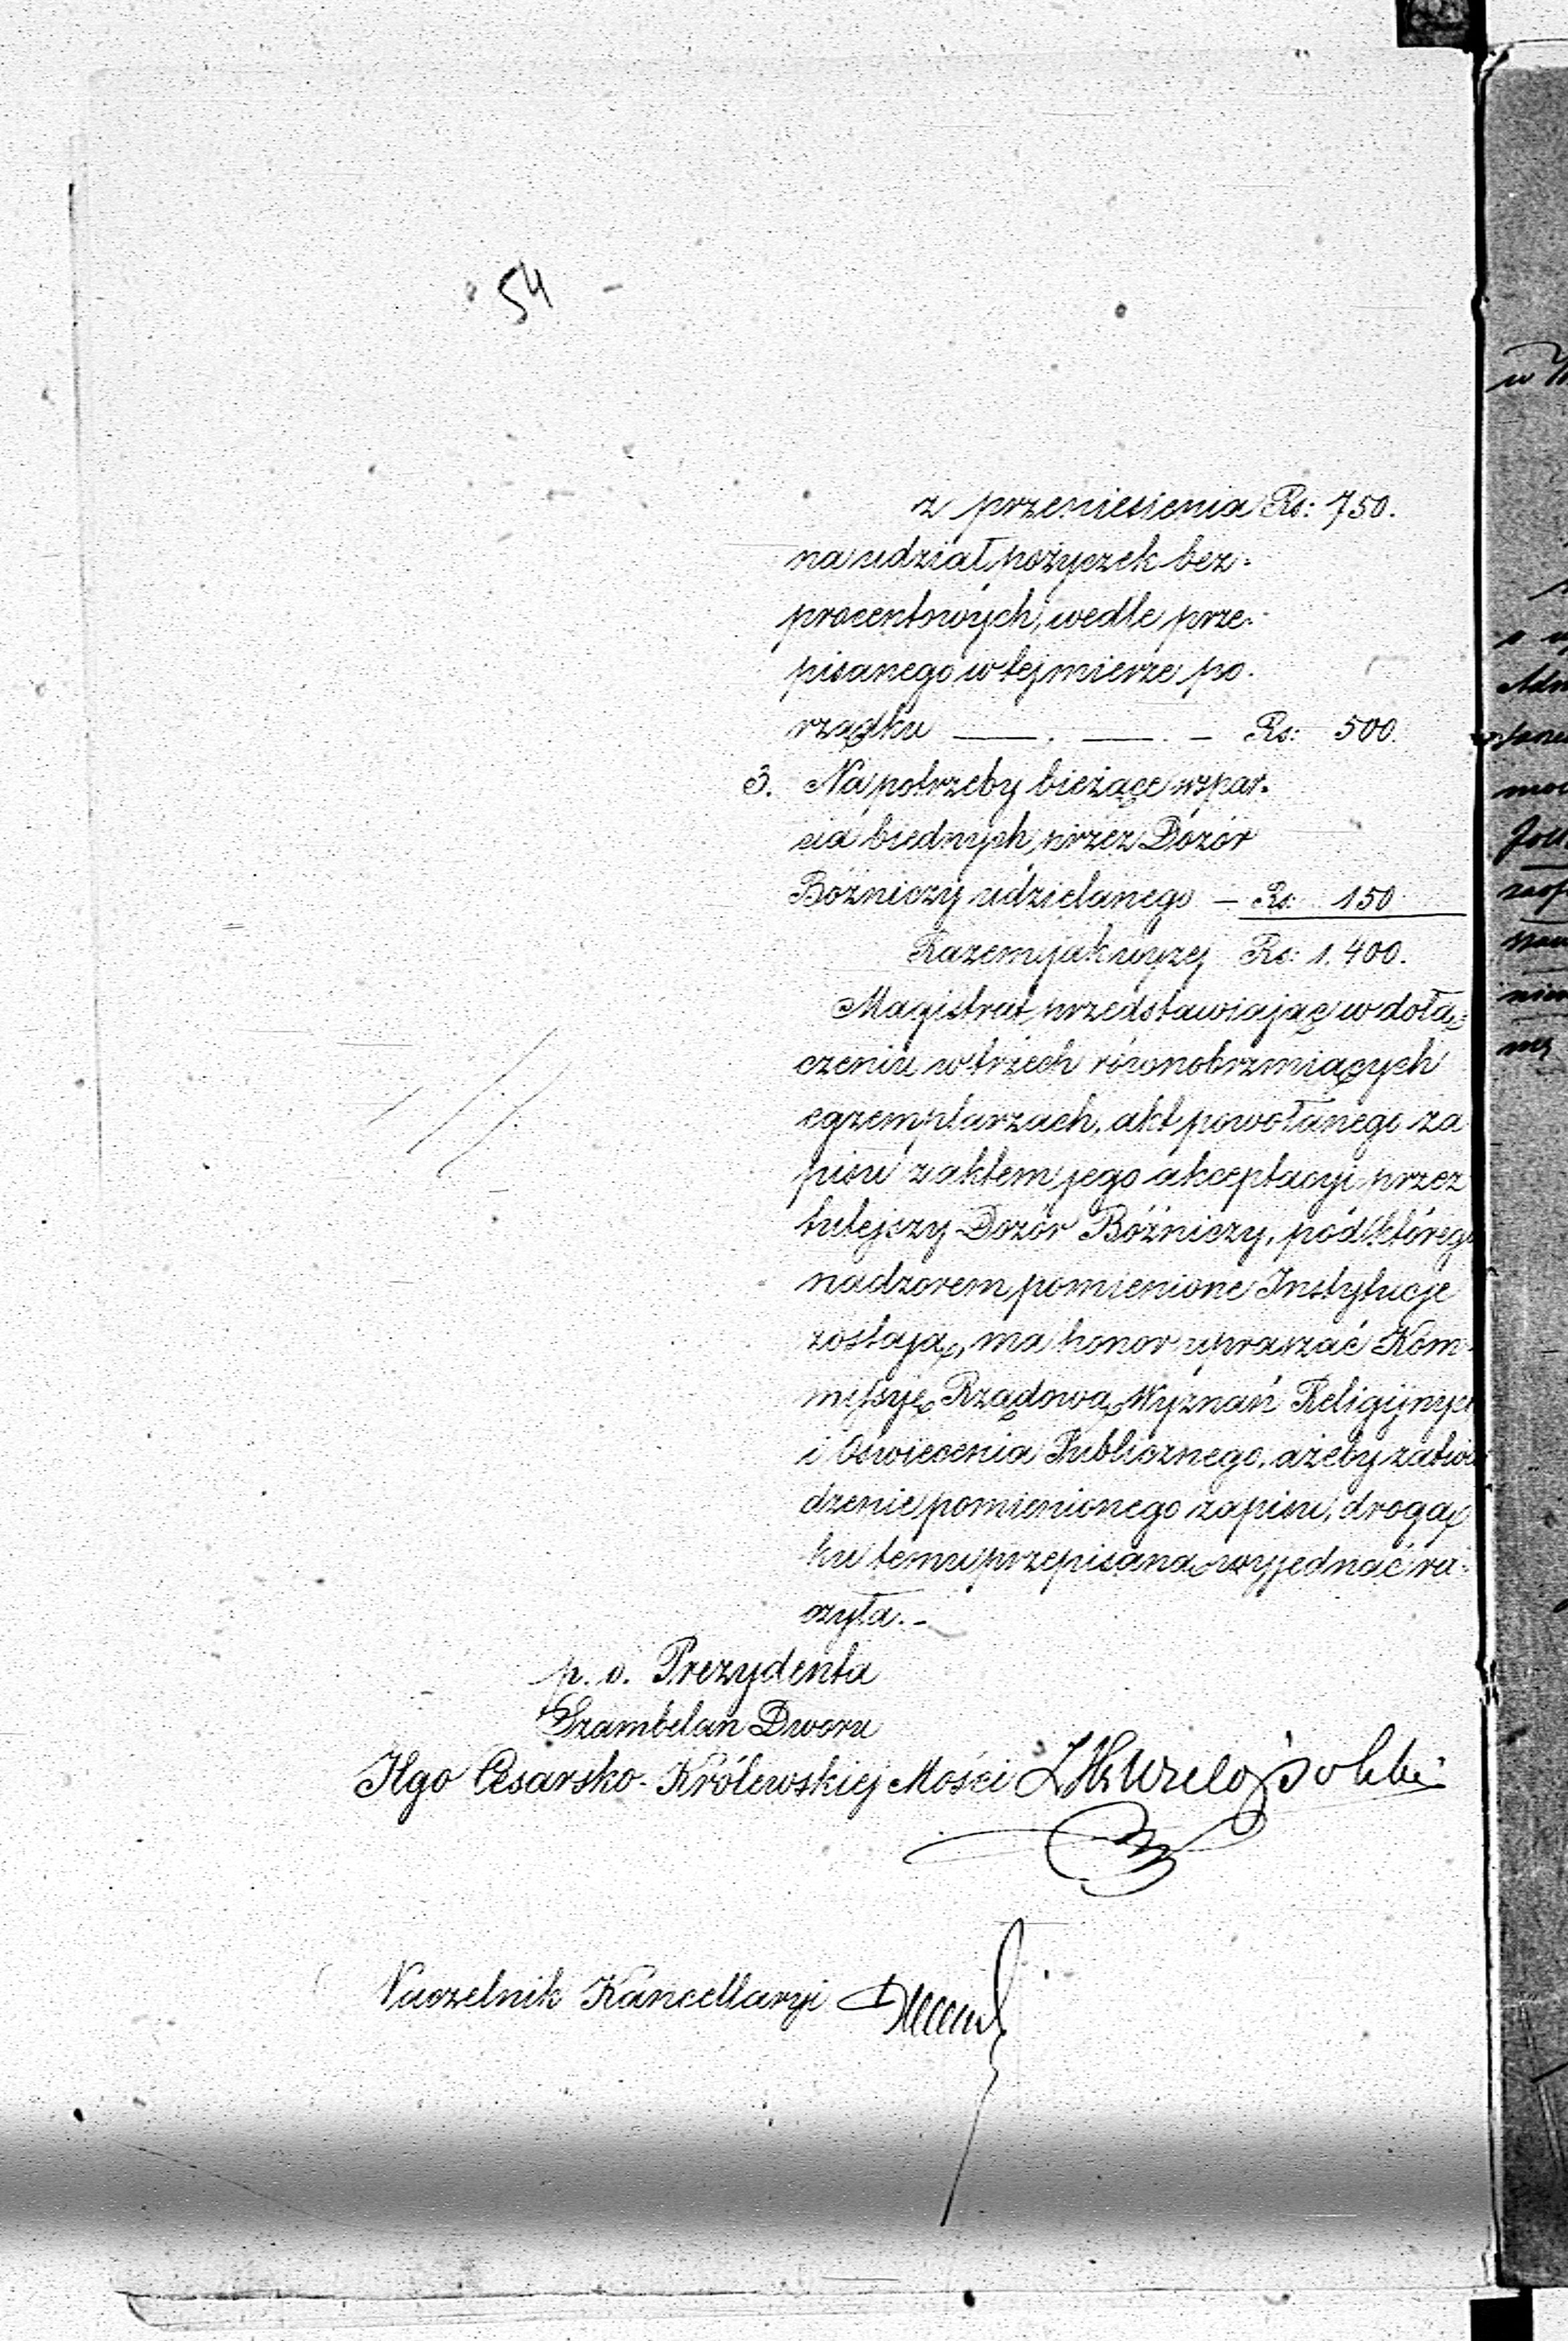 54
z przeniesienia Rs: 750.
na udział pożyczek bez-
procentowych, wedle prze-
pisanego w tej mierze po-
rządku — . — . — Rs: 500.
3. Na potrzeby bieżące wspar-
cia biednych, przez Dozór
Bóżniczy udzielanego — Rs: 150
Razem jak wyżej Rs: 1.400.
Magistrat przedstawiając w dołą-
czeniu w trzech równobrzmiących
egzemplarzach, akt powołanego za
pisu z aktem jego akceptacyi przez
tutejszy Dozór Bóżniczy, pod którego
nadzorem pomienione Instytucje
zostają, ma honor upraszać Kom-
missyję Rządową Wyznań Religijnych
i Oświecenia Publicznego, ażeby zatwier
dzenie pomienionego zapisu, drogą
ku temu przepisaną wyjednać ra-
czyła. -
p. o. Prezydenta
Szambelan Dworu
Jego Cesarsko-Królewskiej Mości Wielopolski
Naczelnik Kancellaryi